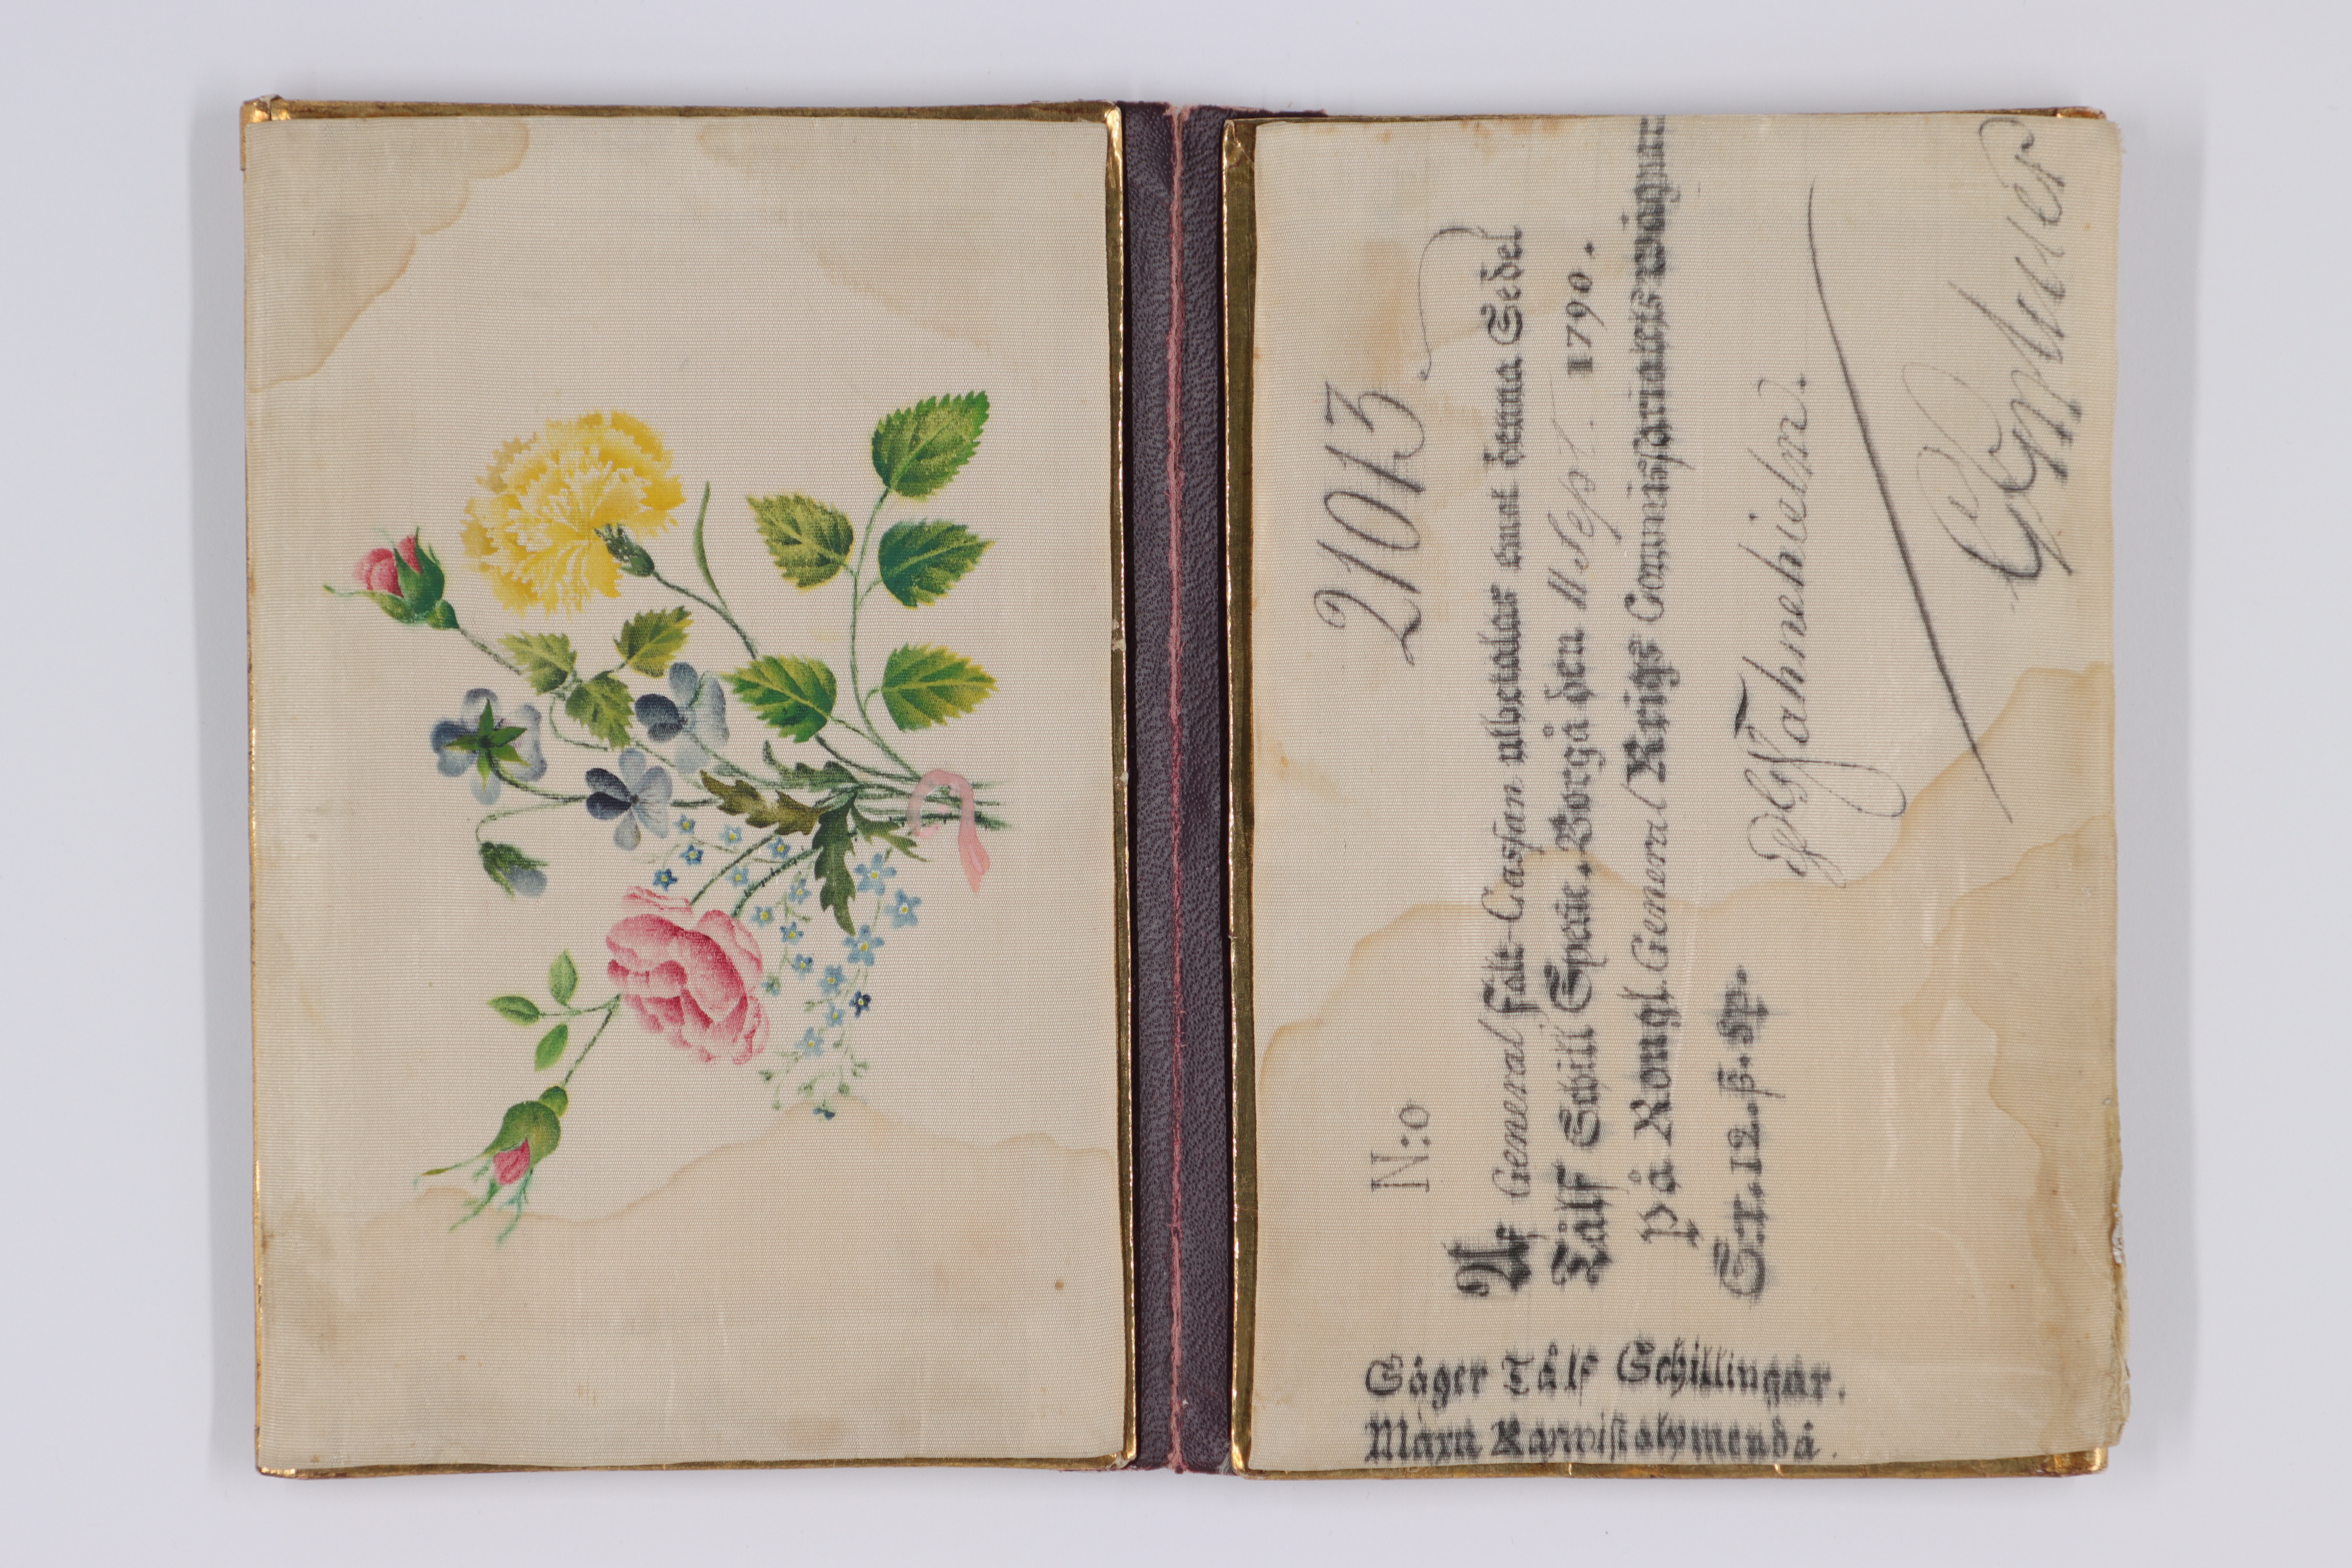 N:o 21013
Af General Fält-Cassan utbetalas emot denna Sedel
Tålf Schill Specie. Borgå den 11 Sept. 1790.
på Kongl. General Krigs Commissariatets wägnar
S:r. 12. ß. Sp.
Fahnehielm.
Säger Tålf Schillingar.